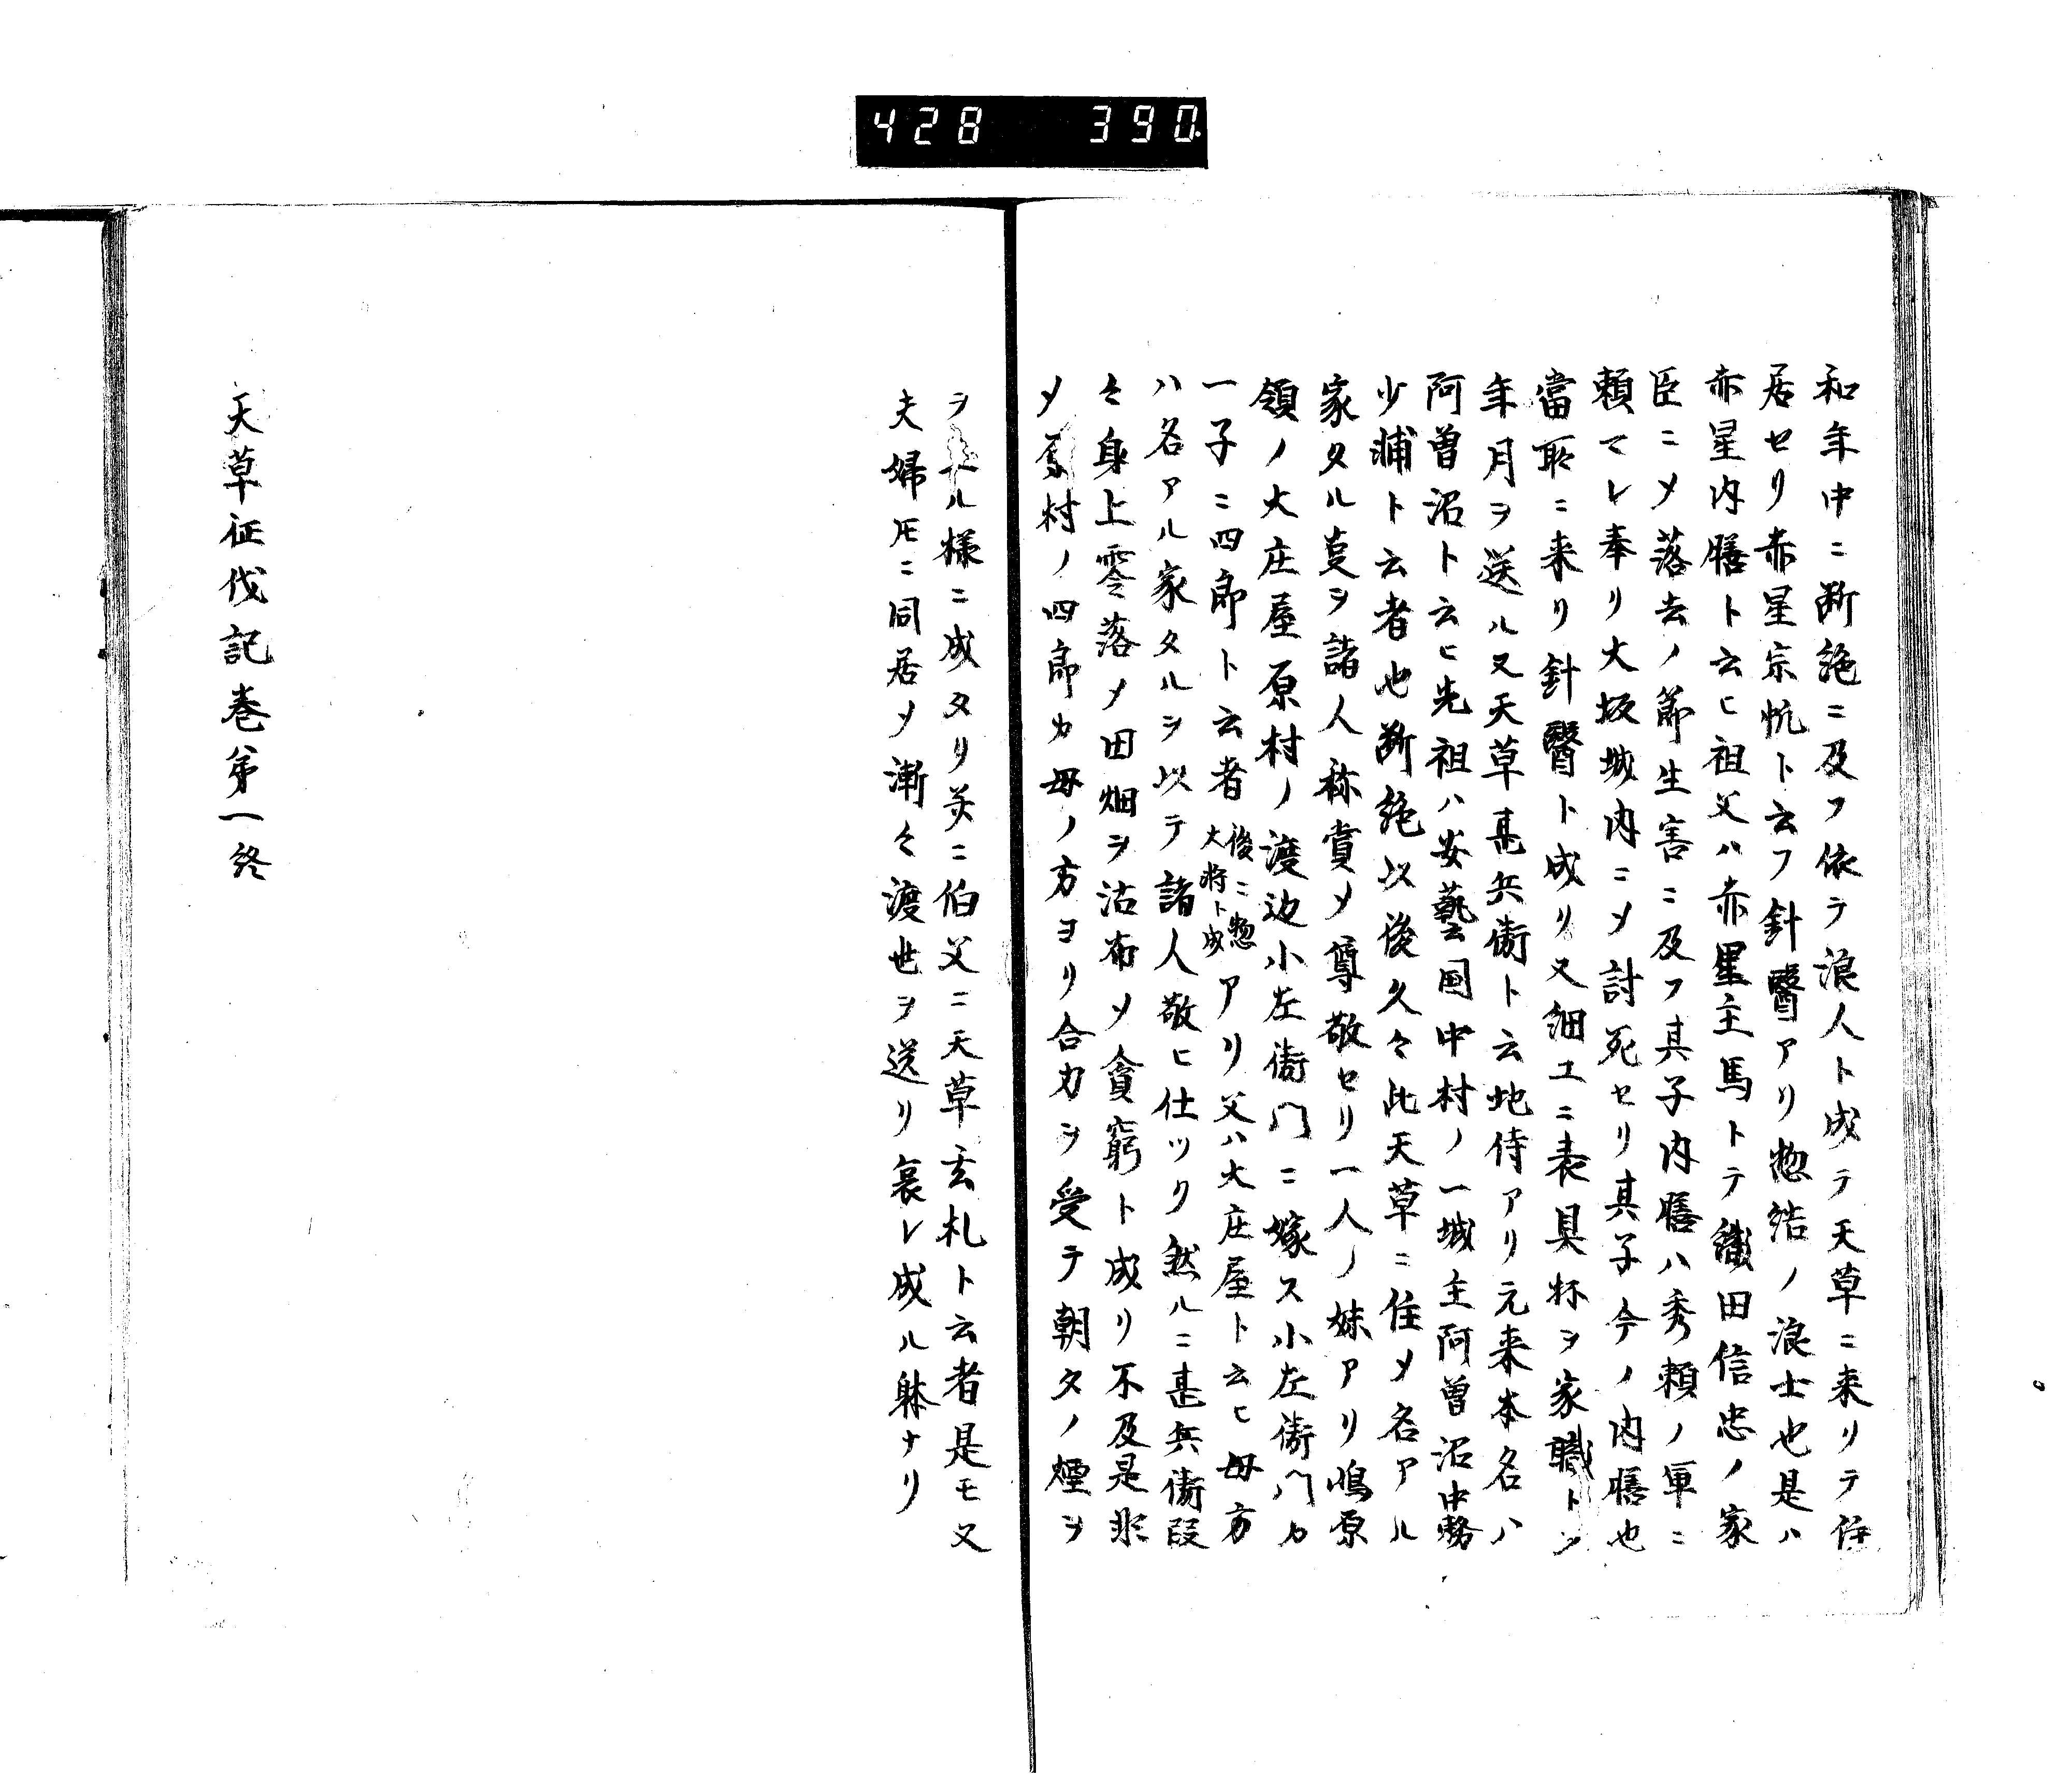 428 390
和年中ニ断絶ニ及フ依テ浪人ト成テ天草ニ来リテ住
居セリ赤星宗忼ト云フ針醫アリ惣結ノ浪士也是ハ
赤星内膳ト云ヒ祖父ハ赤星主馬トテ織田信忠ノ家
臣ニメ落去ノ節生害ニ及フ其子内膳ハ秀頼ノ軍ニ
頼マレ奉リ大坂城内ニメ討死セリ其子今ノ内膳也
當所ニ来リ針醫ト成リ又細工ニ表具杯ヲ家職トシ
年月ヲ送ル又天草甚兵衛ト云地侍アリ元来本名ハ
阿曽沼ト云ヒ先祖ハ安藝国中村ノ一城主阿曽沼中務
少輔ト云者也断絶以後久々此天草ニ住メ名アル
家タル㕝ヲ諸人称賞メ尊敬セリ一人ノ妹アリ嶋原
領ノ大庄屋原村ノ渡边小左衛門ニ嫁ス小左衛門カ
一子ニ四郎ト云者後ニ惣大将ト成アリ父ハ大庄屋ト云ヒ母方
ハ名アル家タルヲ以テ諸人敬ヒ仕ツク然ルニ甚兵衛段
々身上零落メ田畑ヲ沽布メ貪窮ト成リ不及是非
メ原村ノ四郎カ母ノ方ヨリ合力ヲ受テ朝夕ノ煙ヲ
ヲル様ニ成タリ爰ニ伯父ニ天草玄札ト云者是モ又
夫婦𪜈ニ同居メ漸々渡世ヲ送リ哀レ成ル躰ナリ
天草征伐記巻第一終